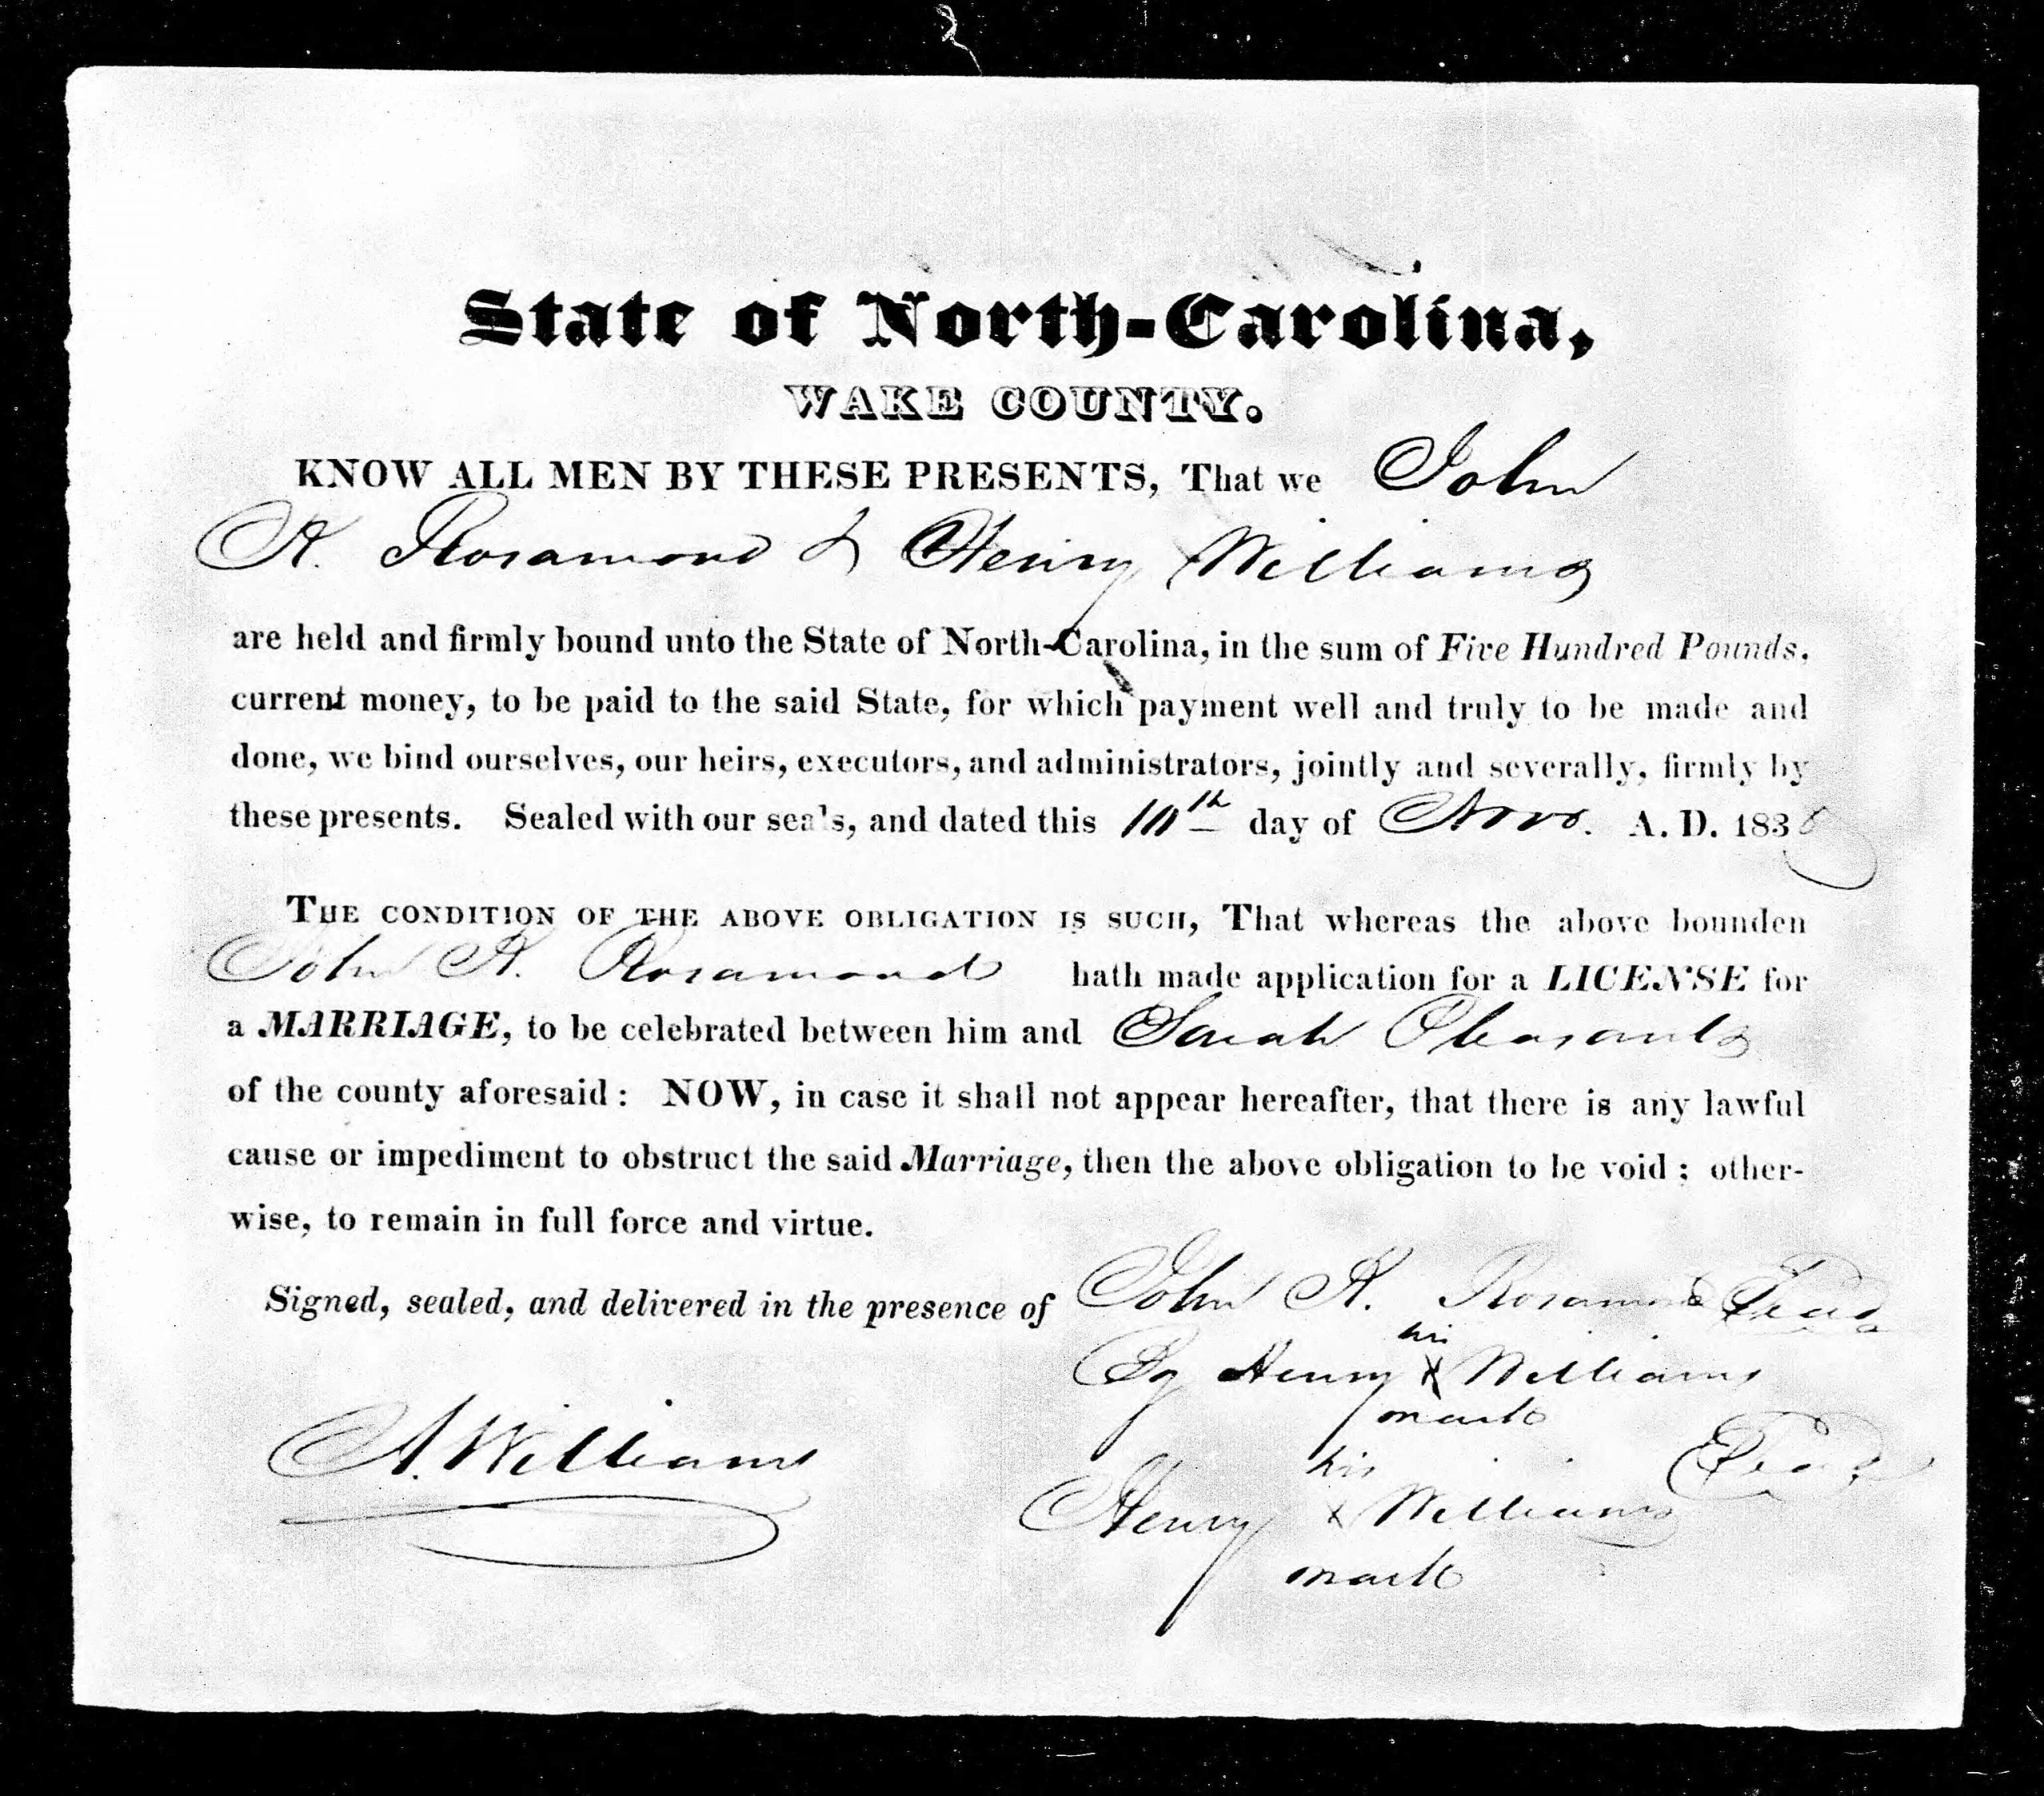 State of North-Carolina,
WAKE COUNTY.
KNOW ALL MEN BY THESE PRESENTS, That we John
A. Rosamond & Henry Williams
are held and firmly bound unto the State of North-Carolina, in the sum of Five Hundred Pounds,
current money, to be paid to the said State, for which payment well and truly to be made and
done, we bind ourselves, our heirs, executors, and administrators, jointly and severally, firmly by
these presents. Sealed with our seals, and dated this 10th day of Novr. A. D. 183
THE CONDITION OF THE ABOVE OBLIGATION IS SUCH, That whereas the above bounden
John A. Rosamond hath made application for a LICENSE for
a MARRIAGE, to be celebrated between him and Sarah Pleasants
of the county aforesaid: NOW, in case it shall not appear hereafter, that there is any lawful
cause or impediment to obstruct the said Marriage, then the above obligation to be void; other-
wise, to remain in full force and virtue.
Signed, sealed, and delivered in the presence of John A. Rosamond Seal
his
By Henry X Williams
mark
A. Williams
his Seal
Henry X Williams
mark